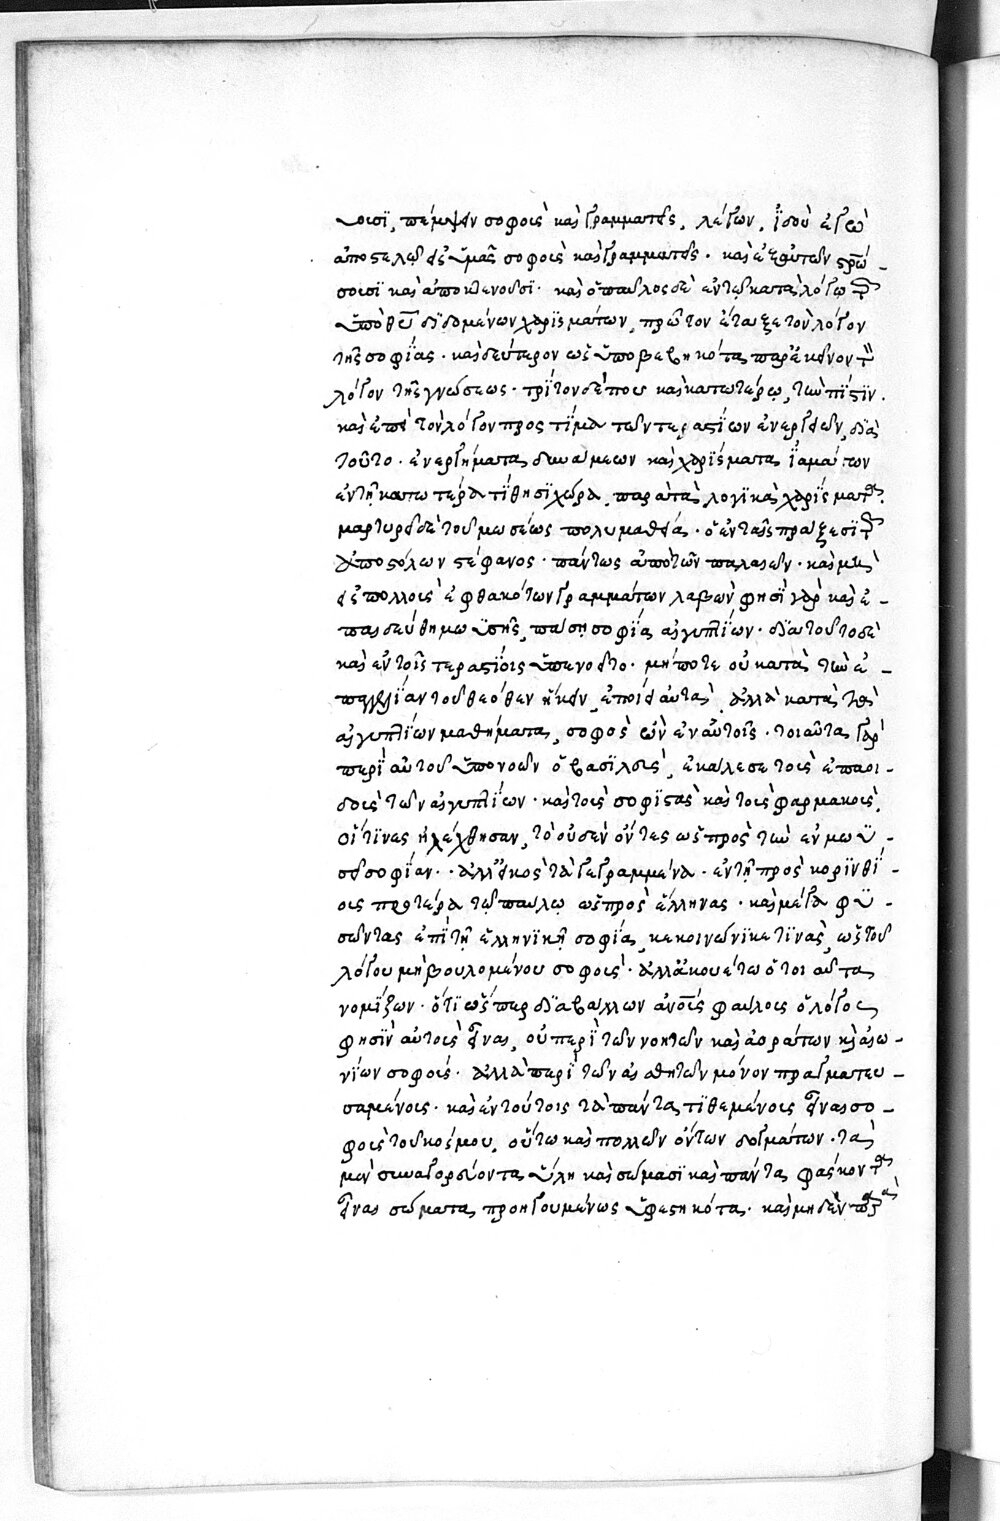 υοισϊ, πέμψειν σοφοὺς καὶ γραμματεῖς, λέγων, ἰδοὺ ἐγὼ
ἀποστέλλω εἰς ὑμᾶς σοφοὺς καὶ γραμματεῖς· καὶ ἐξ αὐτῶν στρώ-
σουσϊ καὶ ἀποκτενοῦσϊ· καὶ ὁ παῦλος δὲ ἐν τῷ καταλόγῳ τῶν
ὑπὸ θυ διδομένων χαρϊσμάτων, πρῶτον ἔταξε τὸν λόγον
τῆς σοφΐας· καὶ δεύτερον ὡς ὑποβεβηκότα παρ' ἐκεῖνον τὸν
λόγον τῆς γνώσεως· τρΐτον δέ που καὶ κατωτέρω, τὴν πΐστϊν.
καὶ ἐπεὶ τὸν λόγον προετΐμα τῶν τεραστΐων ἐνεργειῶν, διὰ
τοῦτο· ἐνεργήματα δυνάμεων καὶ χαρΐσματα ϊαμάτων
ἐν τῆ κατωτέρα τΐθησϊ χώρα, παρὰ τὰ λογϊκὰ χαρΐσματα.
μαρτυρεῖ δὲ τοῦ μωσέως πολυμαθεία· ὁ ἐν ταῖς πράξεσϊ τῶν
ἀποστόλων στέφανος· πάντως ἀπὸ τῶν παλαιῶν· καὶ μὴ
εἰς πολλοὺς ἐφθακότων γραμμάτων λαβὼν φησὶ γὰρ καὶ ἐ-
παιδεύθη μωϋσῆς, πάση σοφΐα αἰγυπτΐων· διὰ τοῦτο δὲ
καὶ ἐν τοῖς τεραστΐοις ὑπενοεῖτο· μήποτε οὐ κατὰ τὴν ἐ-
παγγελΐαν τοῦ θεόθεν ἥκειν, ἐποίει αὐτὰ, ἀλλὰ κατὰ τὰ
αἰγυπτΐων μαθήματα, σοφὸς ὢν ἐν αὐτοῖς· τοιαῦτα γὰρ
περὶ αὐτοῦ ὑπονοῶν ὁ βασϊλεὺς, ἐκάλεσε τοὺς ἐπαοι-
δοὺς τῶν αἰγυπτΐων· καὶ τοὺς σοφϊστὰς καὶ τοὺς φαρμακοὺς,
οἵτϊνες ἠλέχθησαν, τὸ οὐδὲν ὄντες ὡς πρὸς τὴν ἐν μωϋ-
σεῖ σοφΐαν· ἀλλ' εἰκὸς τὰ γεγραμμένα· ἐν τῆ πρὸς κορϊνθΐ-
ους προτέρα τῷ παύλῳ ὡς πρὸς ἕλληνας· καὶ μέγα φϋ-
σῶντας ἐπὶ τῆ ἑλληνϊκῆ σοφΐα, κεκοινωνϊκε τϊνὰς, ὡς τοῦ
λόγου μὴ βουλομένου σοφοὺς· ἀλλ' ἀκουέτω ὅτοι αὐτὰ
νομΐζων· ὅτϊ ὥσπερ διαβάλλων ἀνους φαύλους ὁ λόγος
φησϊν αὐτοὺς εἶναι, οὐ περὶ τῶν νοητῶν καὶ ἀοράτων καὶ αἰω-
νΐων σοφοὺς· ἀλλὰ περὶ τῶν αἰσθητῶν μόνον πραγματευ-
σαμένους· καὶ ἐν τούτοις τὰ πάντα τϊθεμένους εἶναι σο-
φοὺς τοῦ κόσμου, οὕτω καὶ πολλῶν ὄντων δογμάτων· τὰ
μὲν συναγορεύοντα ὕλη καὶ σώμασϊ καὶ πάντα φάσκοντα
εἶναι σώματα προηγουμένως ὑφεστηκότα· καὶ μηδὲν παρὰ